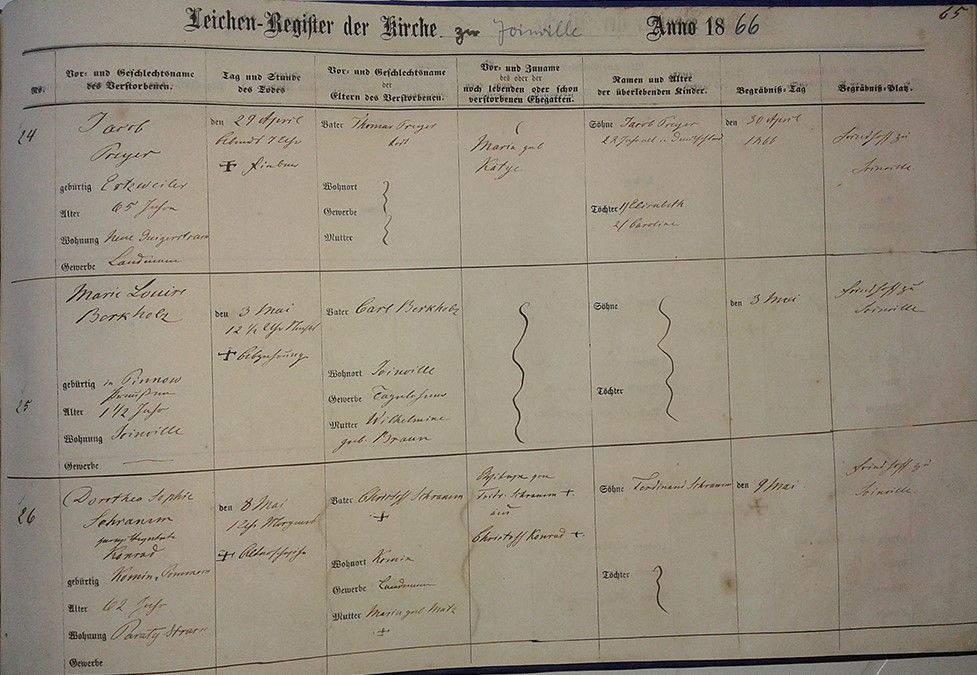 65
Leichen-Register der Kirche zu Joinville Anno 1866
No.
Vor- und Geschlechtsname
des Verstorbenen.
Tag und Stunde
des Todes
Vor- und Geschlechtsname
der
Eltern des Verstorbenen.
Vor- und Zuname
des oder der
noch lebenden oder schon
verstorbenen Ehegatten.
Namen und Alter
der überlebenden Kinder.
Begräbniß-Tag
Begräbniß-Platz.
24
Jacob
Preyer
gebürtig
Alter 65 Jahre
Wohnung Neue
Gewerbe Landmann
den 29 April
Abends 7 Uhr
+ Fieber
Vater Thomas Preyer
todt
Wohnort
Gewerbe
Mutter
Maria geb
Söhne Jacob Preyer
Töchter 1/ Elisabeth
2/ Caroline
den 30 April
1866
Friedhoff zu
Joinville
25
Marie Louise
Berkholz
gebürtig in Pinnow
Preußen
Alter 1 1/2 Jahr
Wohnung Joinville
Gewerbe —
den 3 Mai
12 1/2 Uhr
+ Abzehrung
Vater Carl Berkholz
Wohnort Joinville
Gewerbe Tagelöhner
Mutter Wilhelmine
geb. Braun
Söhne
Töchter
den 3 Mai
Friedhoff zu
Joinville
26
Dorothea Sophie
Schramm
Konrad
gebürtig Pommern
Alter 62 Jahr
Wohnung Paraty Strasse
Gewerbe
den 8 Mai
1 Uhr Morgens
+ Altersschwäche
Vater Christoff Schramm
+
Wohnort
Gewerbe Landmann
Mutter Maria geb
+
Schramm +
Christoff Konrad +
Söhne Ferdinand Schramm
Töchter
den 9 Mai
Friedhoff zu
Joinville